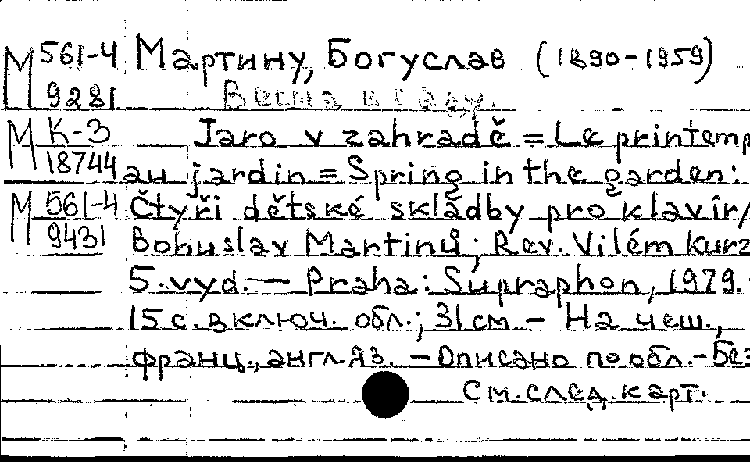 М 561-4 Мартину, Богуслав (1890-1959)
9281 Весна в саду.
М К-3 Jaro v zahradě = Le printemp
18744 au jardin = Spring in the garden:
М 561-4 Čtyři dětské skládby pro klavír/
9431 Bohuslav Martinů; Rev. Vilém Kurz
5. vyd. — Praha: Supraphon, 1979.
15 с. включ. обл.; 31 см — На чеш.,
франц., англ. яз. — Описано по обл. - Без
См. след. карт.